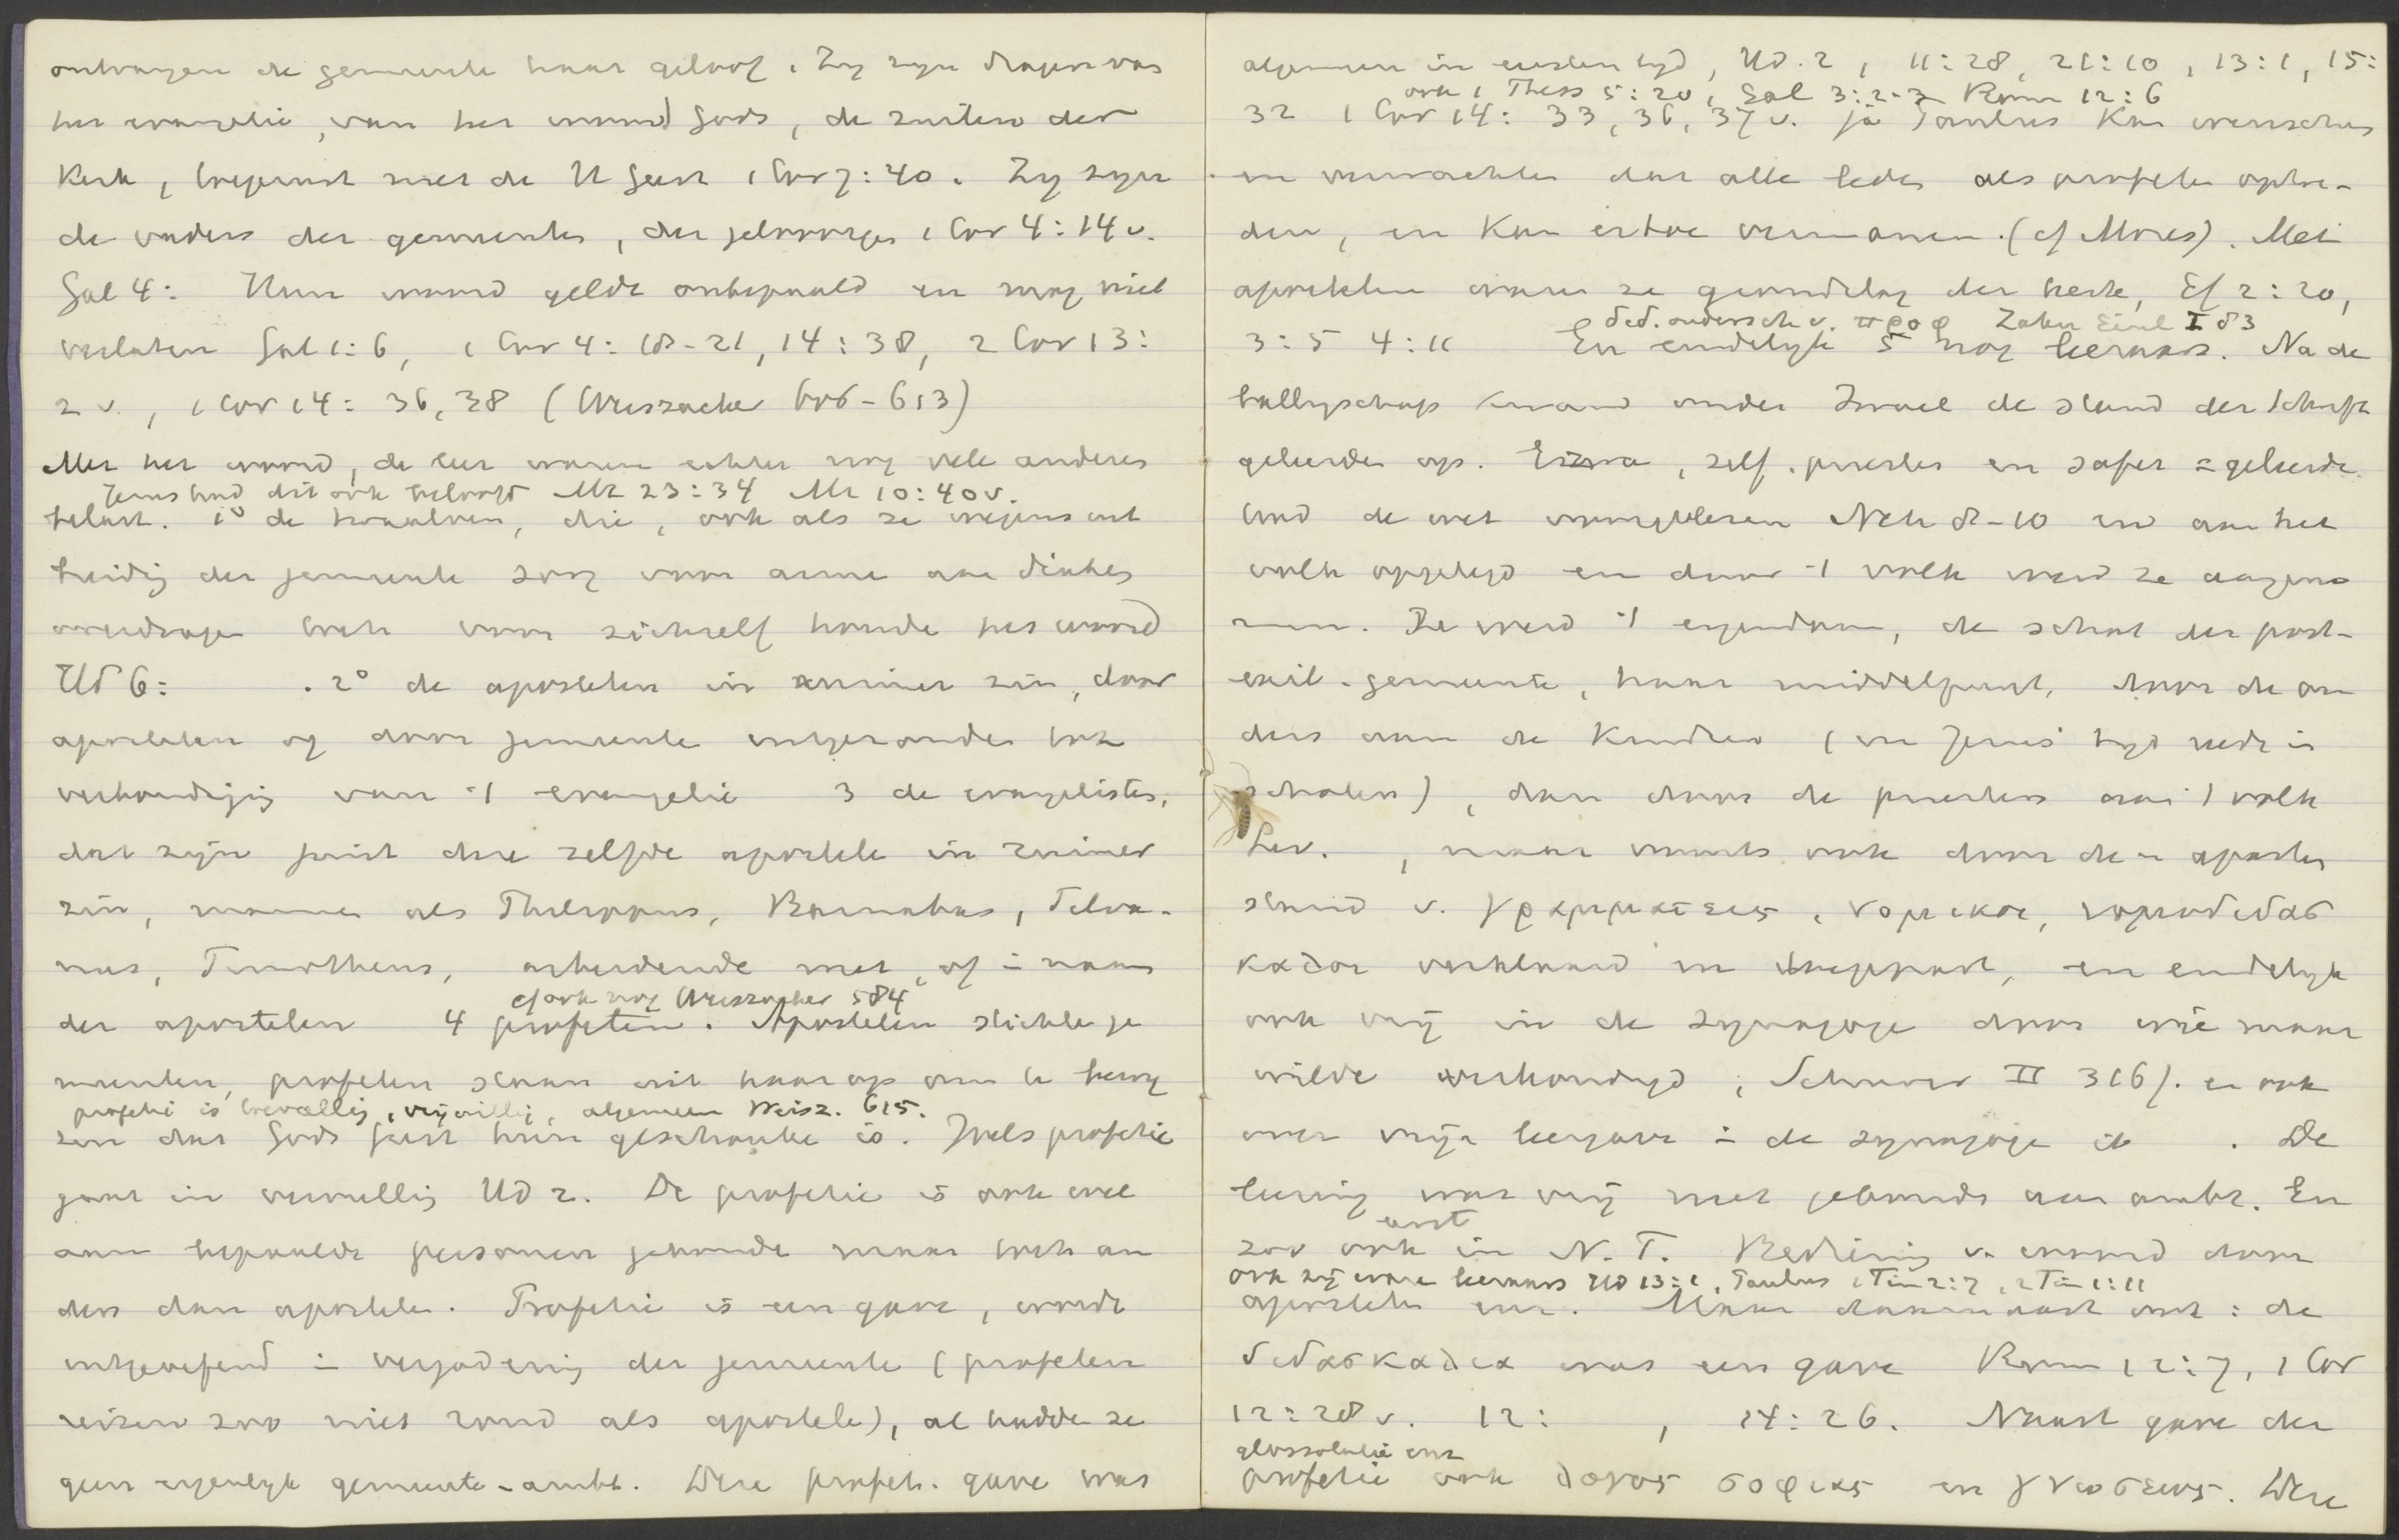 ontvangen de gemeente haar geloof. Zy zyn dragers van
het evangelie, van het woord Gods, de zuilen der
Kerk, begunst met de H Geest 1 Cor 7:40. Zy zyn
de vaders der gemeenten, der geloovigen 1 Cor 4:14 v.
Gal 4: Hun woord geldt onbepaald en mag niet
verlaten Gal 1:6, 1 Cor 4:18-21, 14:38, 2 Cor 13:
2 v., 1 Cor 14: 36, 38 (Weiszacker 606-613)
Met het woord, de leer waren echter nog vele anderen
Jezus had dit ook beloofd Mt 23:34 Mt 10:40 v.
belast. 1° de twaalven, die, ook als ze wegens uit
breidig der gemeente zorg voor arme aan diakes
overdragen toch voor zichzelf houde het woord
Hd 6: . 2° de apostelen in ruimer zin, door
apostelen of door gemeente uitgezonden tot
verkondigig van 't evangelie 3 de evangelisten,
dat zijn juist die zelfde apostele in ruimer
zin, mannen als Philippus, Barnabas, Silva-
nus, Timotheus, arbeidende met, of in naam
cf ook nog Weiszacker 584
der apostelen 4 profeten. Apostelen stichte ge
meenten, profeten staan uit haar op om te
profetie is toevallig, vrijwillig, algemeen Weisz. 615.
dat Gods Geest hun geschonke is. Joels profetie
gaat in vervullig Hd 2. De profetie is ook wel
aan bepaalde personen gebonde maar toch an
ders dan apostele. Profetie is een gave, wordt
uitgeoefend in vergaderig der gemeente (profeten
reizen zoo niet rond als apostele), al hadde ze
geen eigenlyk gemeente-ambt. Deze profet. gave was
algemeen in eersten tyd, Hd. 2, 11:28, 21:10, 13:1, 15:
ook 1 Thess 5:20, Gal 3:2-3 Rom 12:6
32 1 Cor 14: 33, 36, 37 v. ja Paulus Kan wenschen
en verwachten dat alle leden als profeten optre-
den, en Kan ertoe vermanen. (cf Mozes). Met
apostelen waren ze grondslag der kerk, Ef 2:20,
Ged. onderscheid v. προφ Zahn Einl I 83
3:5 4:11 En eindelyk 5 nog leeraars. Na de
ballingschap kwam onder Israel de stand der schrift
geleerden op. Ezra, zelf priester en safer = geleerde
had de wet voorgelezen Neh 8-10 en aan het
volk opgelegd en door 't volk werd ze aangeno
men. Ze werd 't eigendom, de schat der post-
exil. gemeente, haar middelpunt, door de ou
ders aan de Kindren (en Jezus' tyd reeds in
scholen), dan door de priesters aan 't volk
Lev. , maar voorts ook door de apartes
stand v. γραμματεις, νομικοι, νομοδιδασ
καλοι verklaard en toegepast, en eindelyk
ook vrij in de synagoge door wie maar
wilde verkondigd, Schurer II 316 f. en ook
over vrije leergave in de synagoge ib . De
leering was vrij niet gebonds aan ambt. En
eerst
zoo ook in N.T. Bediening v. woord door
ook zij ware leeraars Hd 13:1, Paulus 1 Tim 2:7, 2 Tim 1:11
apostelen enz. Maar daarnaast ook: de
διδασκαλια was een gave Rom 12:7, 1 Cor
12:28 v. 12: , 14:26. Naast gave der
glossolalie enz
profetie ook λογος σοφιας en γνωσεως. Deze